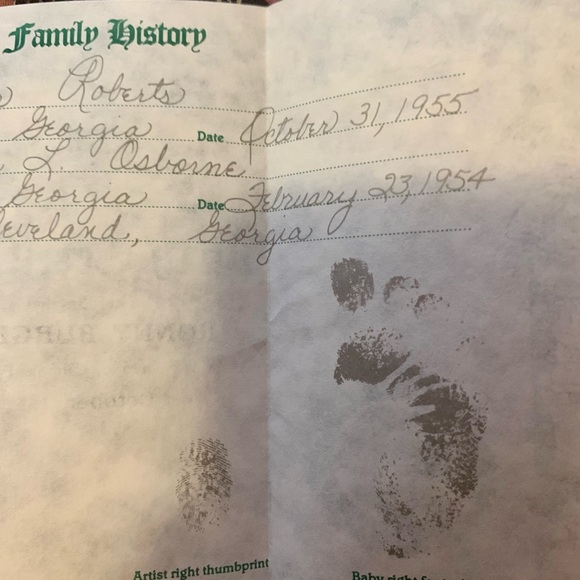 Family History
Roberts
Georgia Date October 31, 1955
L. Osborne
Georgia Date February 23, 1954
leveland, Georgia
Artist right thumbprint
Baby right